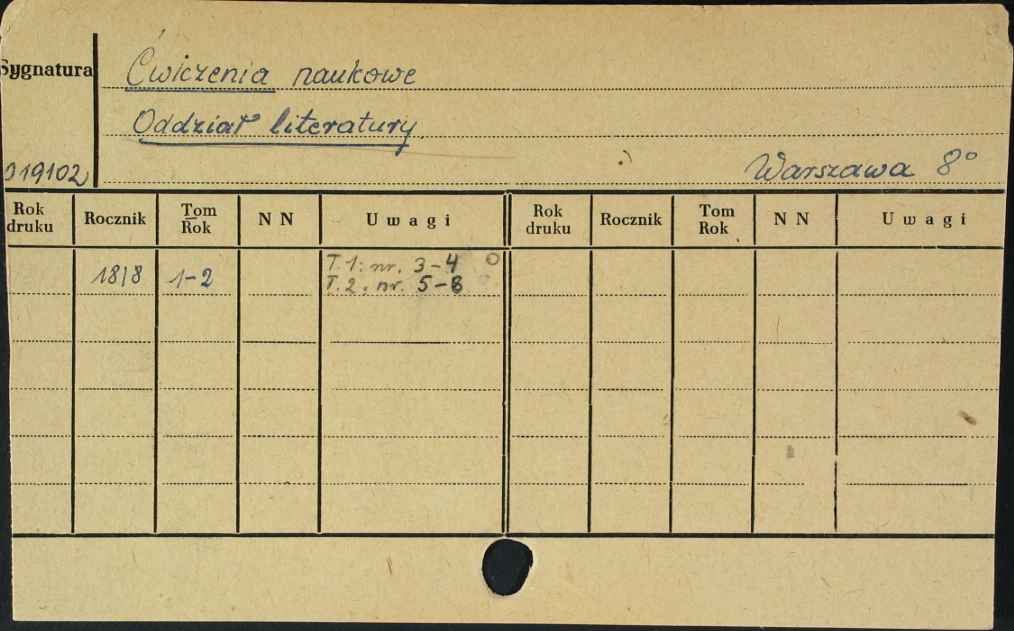 Sygnatura
Ćwiczenia naukowe
Oddział literatury
019102
Warszawa 8°
Rok druku Rocznik Tom Rok N N Uwagi Rok druku Rocznik Tom Rok N N Uwagi
1818 1-2 T. 1: nr. 3-4
T. 2: nr. 5-8